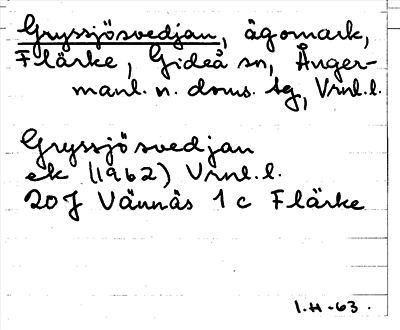 Gryssjösvedjan, ägomark,
Flärke, Gideå sn, Ånger-
manl. n. doms. tg, Vrnl.l.
Gryssjösvedjan
ek (1962) Vrnl.l.
20 J Vännäs 1 c Flärke
I.H-63.